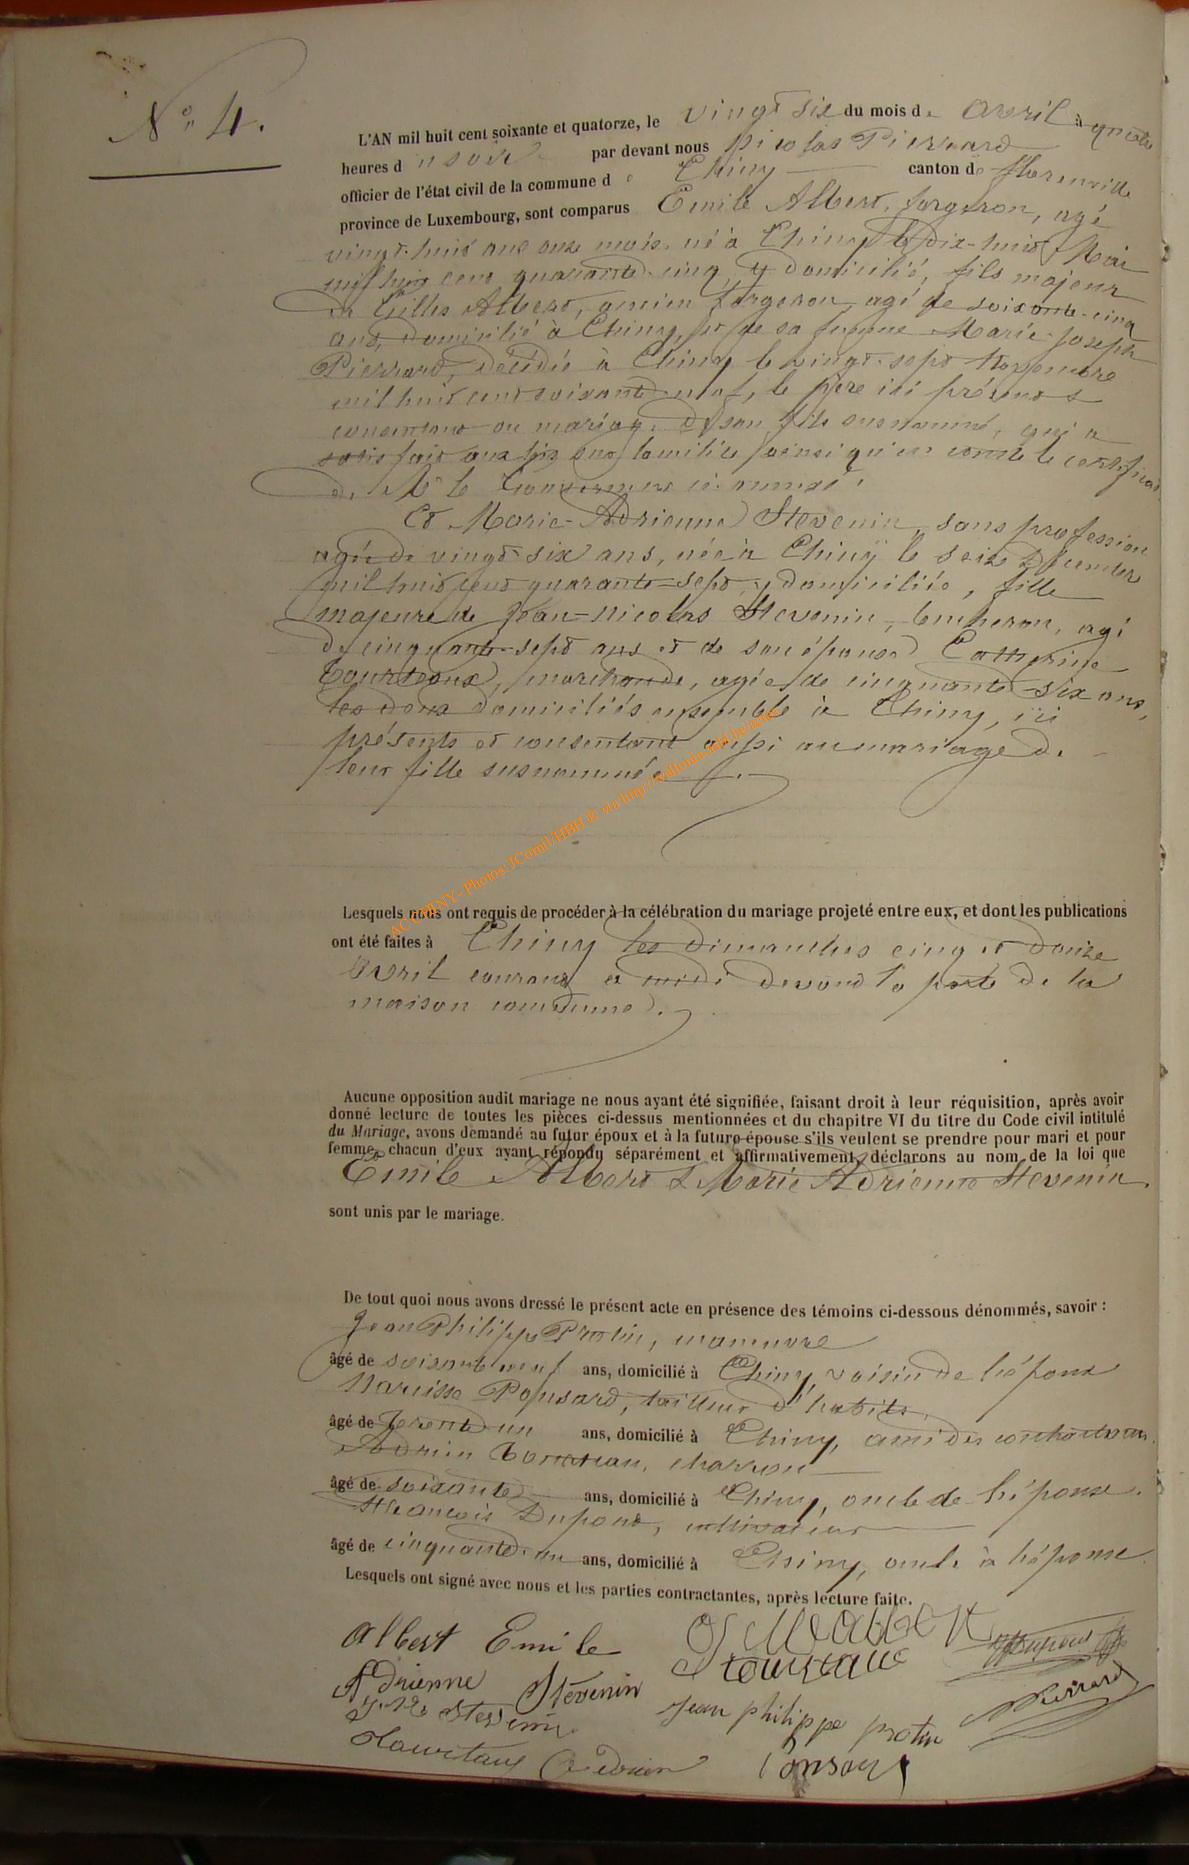 N° 4.
L'AN mil huit cent soixante et quatorze, le vingt six du mois d'avril à quatre
heures du soir par devant nous Nicolas Pierrard
officier de l'état civil de la commune de Chiny canton de Florenville
province de Luxembourg, sont comparus Emile Albert, forgeron, agé
vingt-huit ans onze mois, né à Chiny le dix-huit Mai
mil huit cent quarante-cinq, y domicilié, fils majeur
de Gilles Albert, ancien forgeron, agé de soixante-cinq
ans, domicilié à Chiny, et de sa femme Marie-Joseph
Pierrard, décédée à Chiny le vingt-sept Novembre
mil huit cent soixante-neuf, le père ici présent &
consentant au mariage de son fils susnommé, qui a
satisfait aux lois sur la milice ainsi qu'en conste le certificat
de Mr le Gouverneur ci-annexé.
Et Marie-Adrienne Stevenin, sans profession
agée de vingt-six ans, née à Chiny le seize Décembre
mil huit cent quarante-sept, y domiciliée, fille
majeure de Jean-Nicolas Stevenin, bucheron, agé
de cinquante-sept ans et de son épouse Catherine
Tourtaux, marchande, agée de cinquante-six ans,
les deux domiciliés ensemble à Chiny, ici
présents et consentant aussi au mariage de
leur fille susnommée.
AC CHINY - Photos: JComil-HBH & via http://
Lesquels nous ont requis de procéder à la célébration du mariage projeté entre eux, et dont les publications
ont été faites à Chiny les dimanches cinq et douze
Avril courant à midi devant la porte de la
maison commune.
Aucune opposition audit mariage ne nous ayant été signifiée, faisant droit à leur réquisition, après avoir
donné lecture de toutes les pièces ci-dessus mentionnées et du chapitre VI du titre du Code civil intitulé
du Mariage, avons demandé au futur époux et à la future épouse s'ils veulent se prendre pour mari et pour
femme, chacun d'eux ayant répondu séparément et affirmativement, déclarons au nom de la loi que
Emile Albert & Marie Adrienne Stevenin.
sont unis par le mariage.
De tout quoi nous avons dressé le présent acte en présence des témoins ci-dessous dénommés, savoir :
Jean Philippe Protin, manœuvre
âgé de soixante neuf ans, domicilié à Chiny, voisin de l'époux
Narcisse Ponsard, tailleur d'habits
âgé de trente un ans, domicilié à Chiny, ami des contractants.
Adrien Tourtaux, charron
âgé de soixante ans, domicilié à Chiny, oncle de l'épouse.
François Dupont, cultivateur
âgé de cinquante-un ans, domicilié à Chiny, oncle à l'épouse.
Lesquels ont signé avec nous et les parties contractantes, après lecture faite.
Albert Emile
Adrienne Stévenin
Stevenin
Tourtaux
Jean philippe protin
Tourtaux Adrien
Ponsard
Dupont
Pierrard